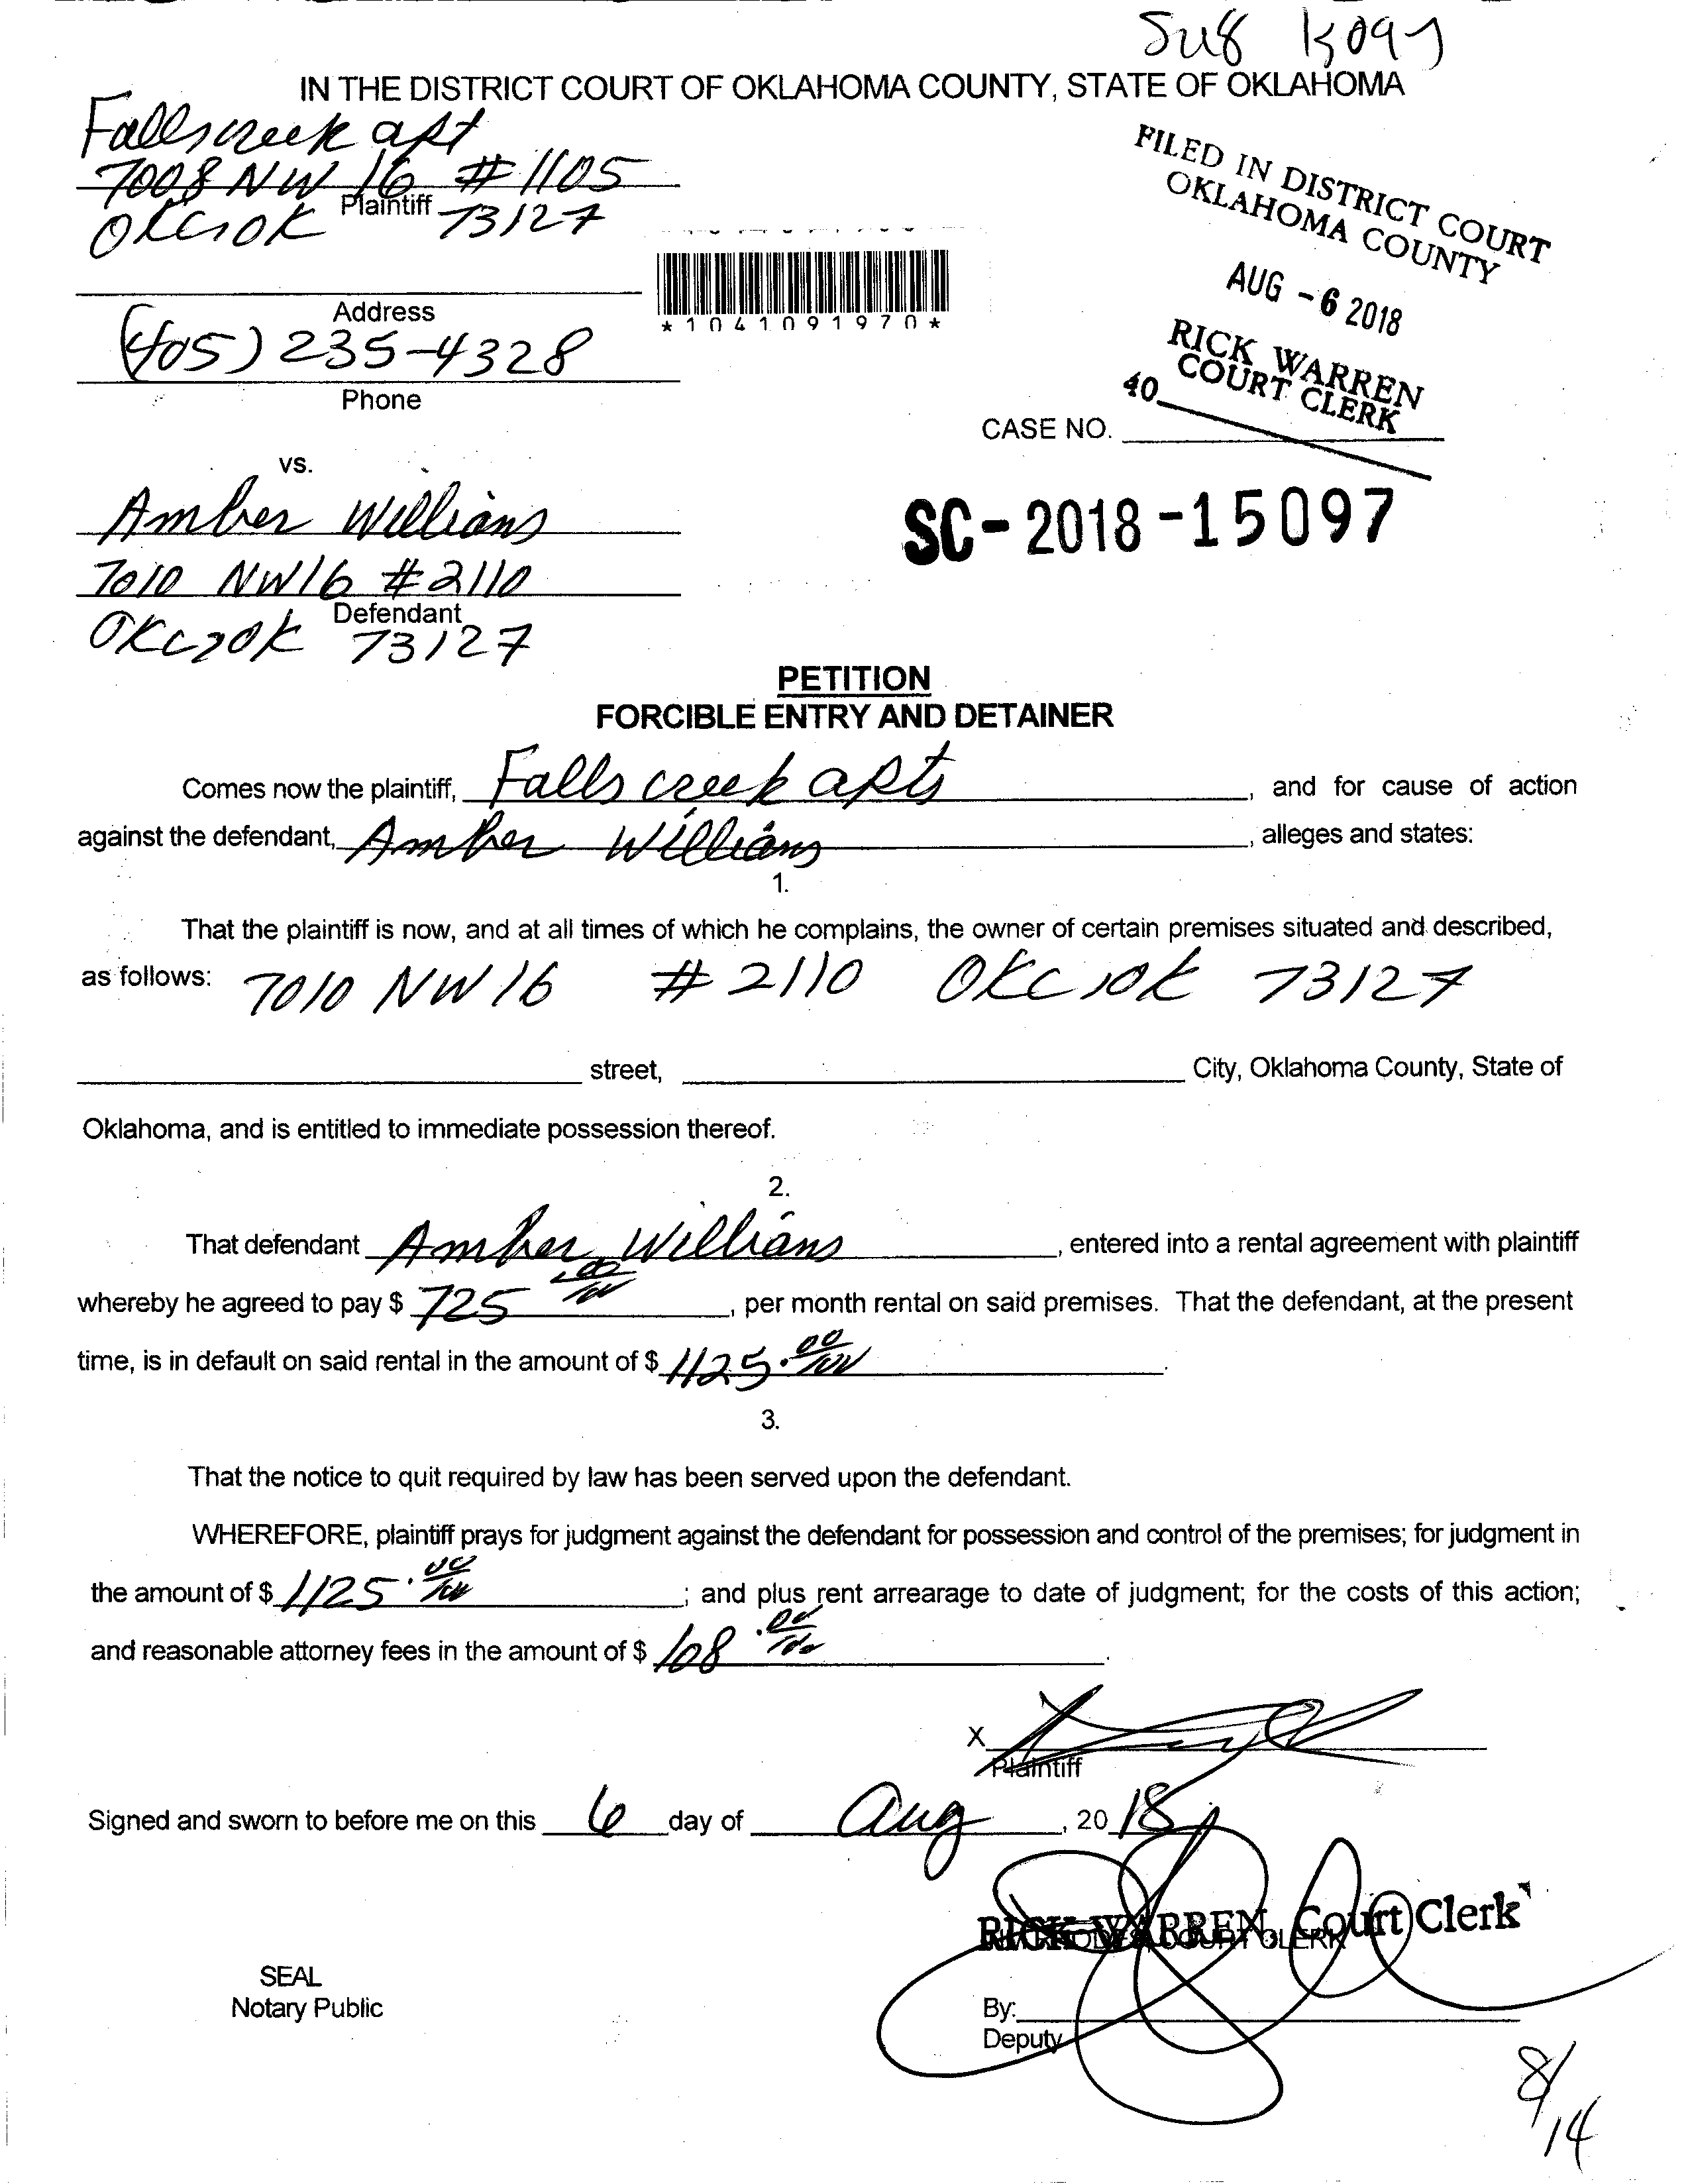 IN THE DISTRICT COURT OF OKLAHOMA COUNTY, STATE OF OKLAHOMA
Fallscreek apt
7008 NW 16 #1105
Plaintiff
OKC, OK 73127
Address
(405) 235-4328
Phone
*1041091970*
FILED IN DISTRICT COURT
OKLAHOMA COUNTY
AUG -6 2018
RICK WARREN
COURT CLERK
40
CASE NO.
SC-2018-15097
vs.
Amber Williams
7010 NW16 #2110
Defendant
OKC, OK 73127
PETITION
FORCIBLE ENTRY AND DETAINER
Comes now the plaintiff, Falls creek apts, and for cause of action
against the defendant, Amber Williams, alleges and states:
1.
That the plaintiff is now, and at all times of which he complains, the owner of certain premises situated and described,
as follows: 7010 NW 16 #2110 OKC, OK 73127
street, City, Oklahoma County, State of
Oklahoma, and is entitled to immediate possession thereof.
2.
That defendant Amber Williams, entered into a rental agreement with plaintiff
whereby he agreed to pay $ 725.00/100, per month rental on said premises. That the defendant, at the present
time, is in default on said rental in the amount of $ 1125.00/100.
3.
That the notice to quit required by law has been served upon the defendant.
WHEREFORE, plaintiff prays for judgment against the defendant for possession and control of the premises; for judgment in
the amount of $ 1125.00/100; and plus rent arrearage to date of judgment; for the costs of this action;
and reasonable attorney fees in the amount of $ 108.00/100.
X
Plaintiff
Signed and sworn to before me on this 6 day of Aug, 2018
RICK WARREN, Court Clerk
COURT CLERK
SEAL
Notary Public
By:
Deputy
8/14